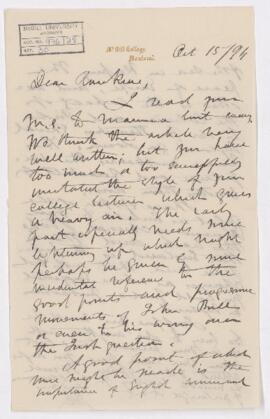 McGILL UNIVERSITY
ARCHIVES
ACC. NO.
REF.
McGill College
Montreal
Oct 15/94
Dear Rankine,
I read your
M.S. to Mamma last evng
We think the article very
well written; but you have
too much & too
the style of your
college lectures which gives
a heavy air. The early
part especially needs more
up which might
perhaps be given by more
reference to the
good points and progressive
movements of John Bull
or even to his wrong ones
the Irish question.
A good point of which
more might be made is the
importance of English